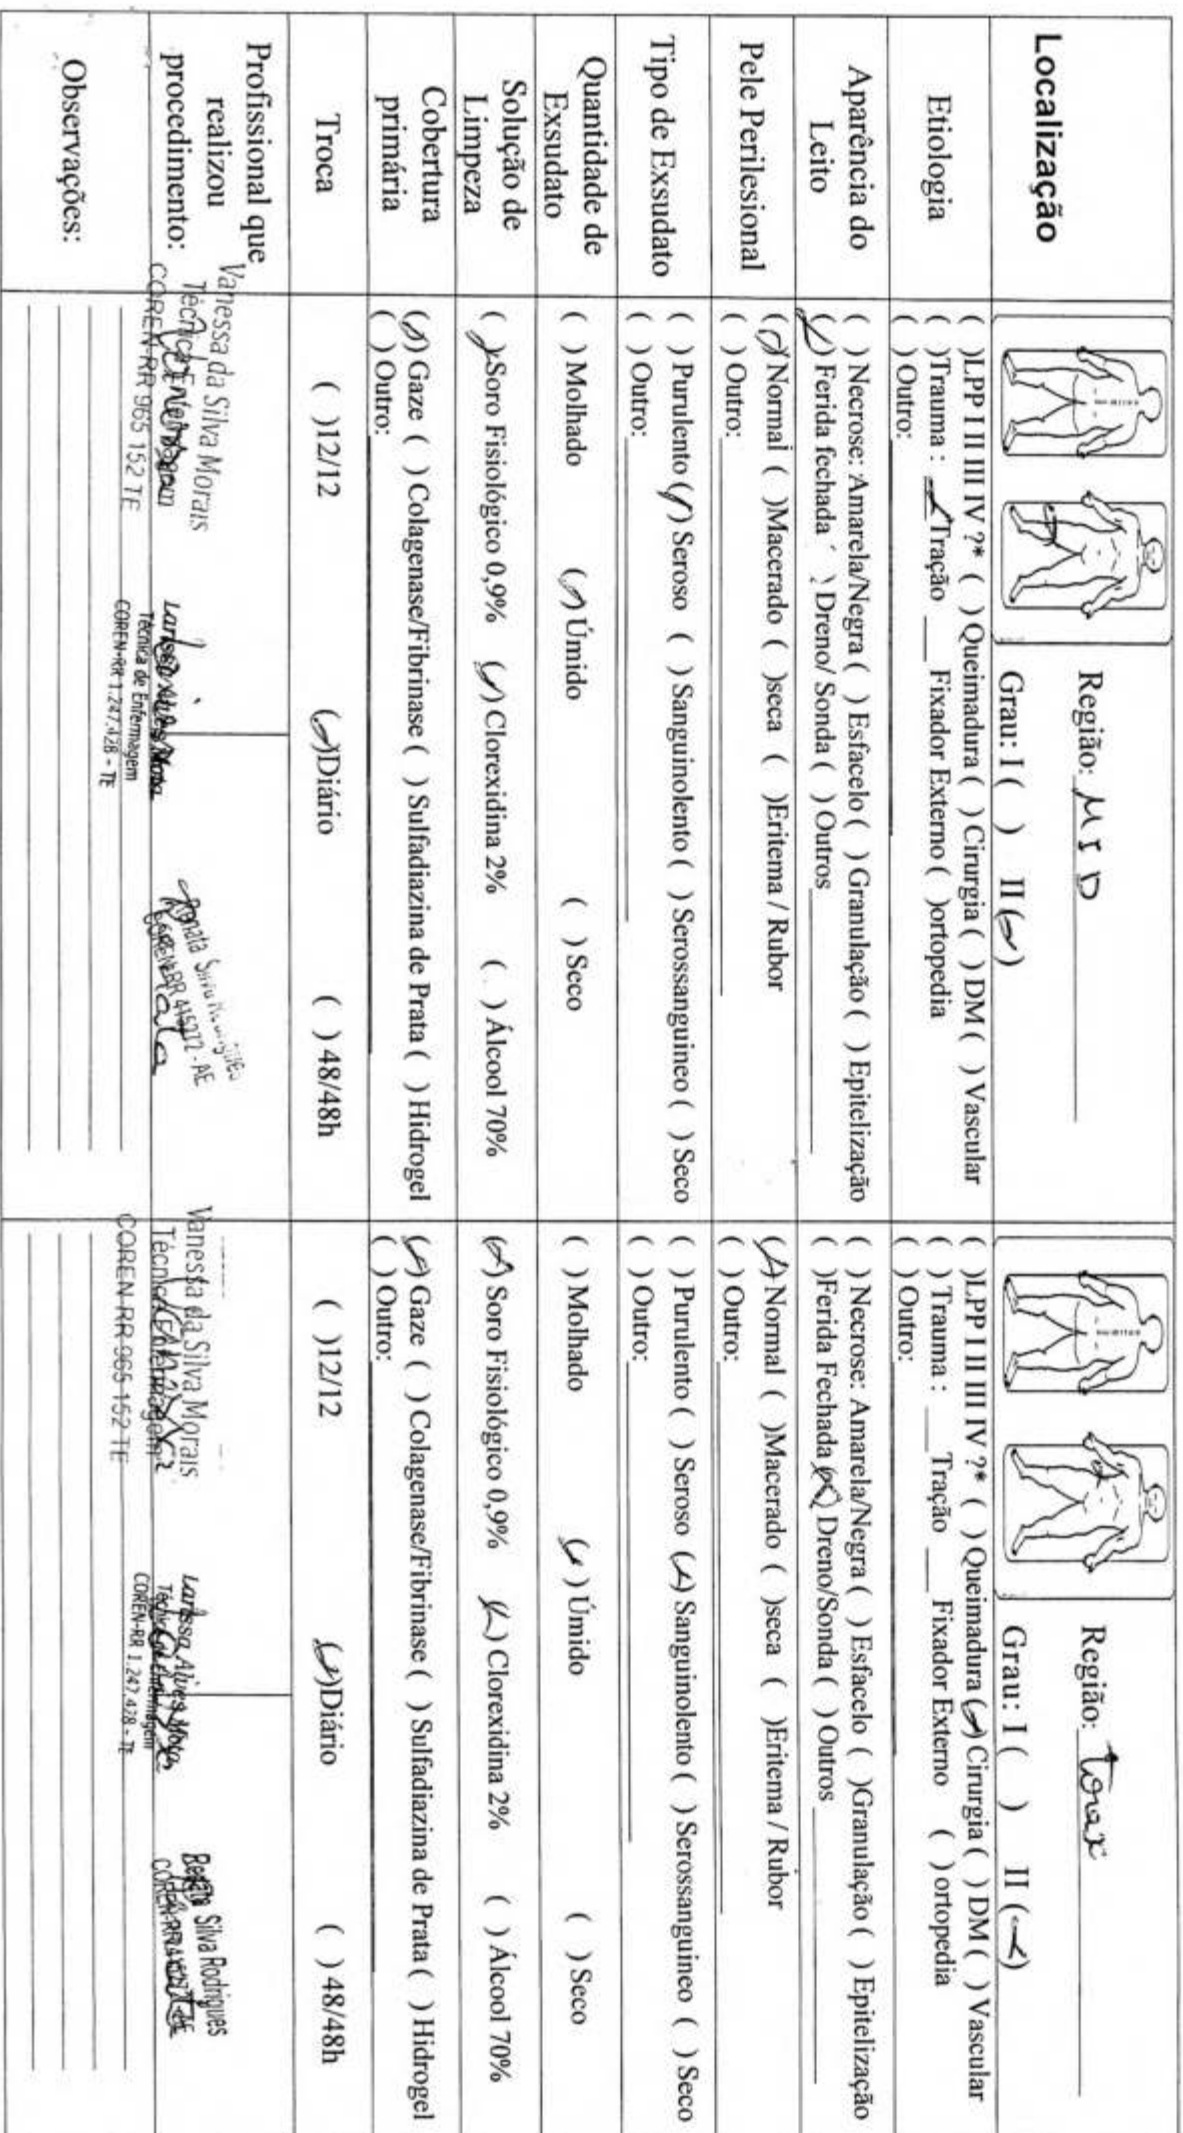 Localização
Região: MID
Grau: I ( ) II (x)
Região: Torax
Grau: I ( ) II (x)
Etiologia
( )LPP I II III IV ?* ( ) Queimadura ( ) Cirurgia ( ) DM ( ) Vascular
( )Trauma : x Tração ___ Fixador Externo ( )ortopedia
( ) Outro:
( )LPP I II III IV ?* ( ) Queimadura (x) Cirurgia ( ) DM ( ) Vascular
( ) Trauma : ___ Tração ___ Fixador Externo ( ) ortopedia
( ) Outro:
Aparência do
Leito
( ) Necrose: Amarela/Negra ( ) Esfacelo ( ) Granulação ( ) Epitelização
(x) Ferida fechada ( ) Dreno/ Sonda ( ) Outros
( ) Necrose: Amarela/Negra ( ) Esfacelo ( )Granulação ( ) Epitelização
( )Ferida Fechada (x) Dreno/Sonda ( ) Outros
Pele Perilesional
(x)Normal ( )Macerado ( )seca ( )Eritema / Rubor
( ) Outro:
(x)Normal ( )Macerado ( )seca ( )Eritema / Rubor
( ) Outro:
Tipo de Exsudato
( ) Purulento (x) Seroso ( ) Sanguinolento ( ) Serossanguineo ( ) Seco
( ) Outro:
( ) Purulento ( ) Seroso (x) Sanguinolento ( ) Serossanguineo ( ) Seco
( ) Outro:
Quantidade de
Exsudato
( ) Molhado (x) Úmido ( ) Seco
( ) Molhado (x) Úmido ( ) Seco
Solução de
Limpeza
(x)Soro Fisiológico 0,9% (x) Clorexidina 2% ( ) Álcool 70%
(x) Soro Fisiológico 0,9% (x) Clorexidina 2% ( ) Álcool 70%
Cobertura
primária
(x) Gaze ( ) Colagenase/Fibrinase ( ) Sulfadiazina de Prata ( ) Hidrogel
( ) Outro:
(x) Gaze ( ) Colagenase/Fibrinase ( ) Sulfadiazina de Prata ( ) Hidrogel
( ) Outro:
Troca
( )12/12 (x)Diário ( ) 48/48h
( )12/12 (x)Diário ( ) 48/48h
Profissional que
realizou
procedimento:
Vanessa da Silva Morais
Técnica Enfermagem
COREN-RR 965 152 TE
Técnica de Enfermagem
COREN-RR 1.247.428 - TE
Renata Silva
COREN-RR 415272 - AE
Renata
Vanessa da Silva Morais
Técnica Enfermagem
COREN-RR 965 152 TE
Larissa Alves
COREN-RR 1.247.428 - TE
Renata Silva Rodrigues
Observações: